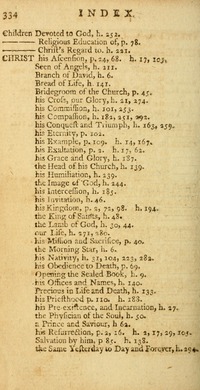 334 INDEX.
Children Devoted to God, h. 252.
——— Religious Education of, p. 78.
——— Christ's Regard to. h. 221.
CHRIST his Ascension, p. 24, 68. h. 17, 103,
Seen of Angels, h. 211.
Branch of David, h. 6.
Bread of Life, h. 141.
Bridegroom of the Church, p. 45.
his Cross, our Glory, h. 21, 274.
his Commission, h. 101, 253.
his Compassion, h. 182, 251, 292.
his Conquest and Triumph, h. 163, 259.
his Eternity, p. 102.
his Example, p. 109. h. 14, 167.
his Exaltation, p. 2. h. 17, 62.
his Grace and Glory, h. 187.
the Head of his Church, h. 139.
his Humiliation, h. 239.
the Image of God, h. 244.
his Intercession, h. 185.
his Invitation, h. 46.
his Kingdom, p. 2, 72, 98. h. 194.
the King of Saints, h. 48.
the Lamb of God, h. 30, 44.
our Life, h. 271, 280.
his Mission and Sacrifice, p. 40.
the Morning Star, h. 6.
his Nativity, h. 31, 104, 223, 282.
his Obedience to Death, p. 69.
Opening the Sealed Book, h. 9.
his Offices and Names, h. 140.
Precious in Life and Death, h. 133.
his Priesthood p. 110. h. 188.
his Pre-existence, and Incarnation, h. 27.
the Physician of the Soul, h. 50.
a Prince and Saviour, h 62.
his Resurrection, p. 2, 16. h. 2, 17, 29, 105.
Salvation by him, p 85. h. 138.
the same Yesterday to Day and Forever, h. 294.